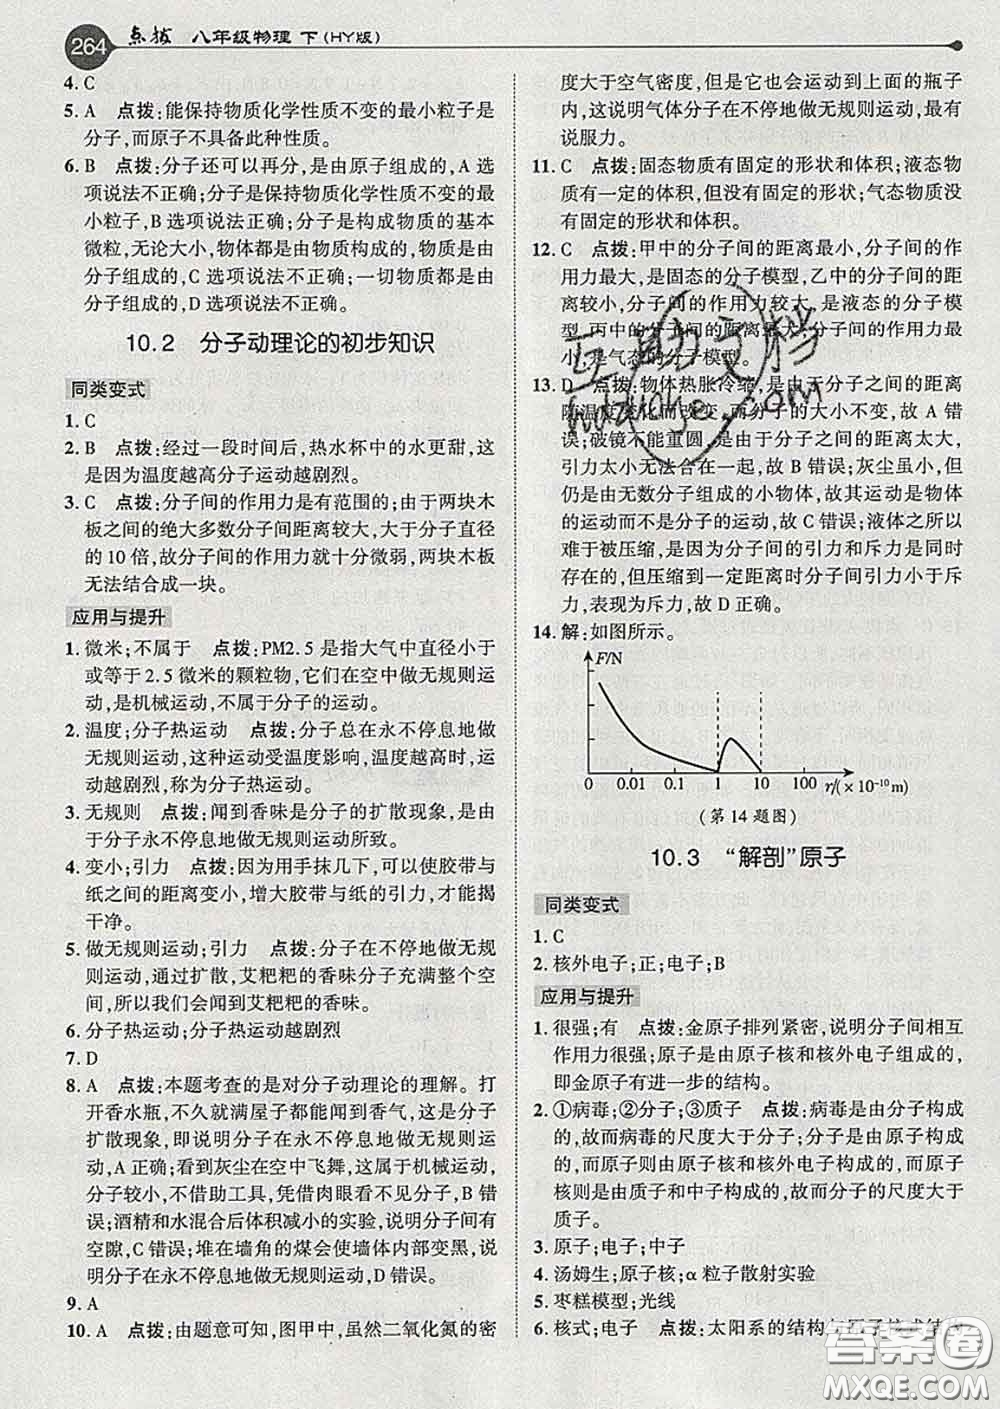 264 点拨 八年级物理 下(HY版)
4. C
5. A 点拨:能保持物质化学性质不变的最小粒子是
分子,而原子不具备此种性质。
6. B 点拨:分子还可以再分,是由原子组成的,A选
项说法不正确;分子是保持物质化学性质不变的最
小粒子,B选项说法正确;分子是构成物质的基本
微粒,无论大小,物体都是由物质构成的,物质是由
分子组成的,C选项说法不正确;一切物质都是由
分子组成的,D选项说法不正确。
10.2 分子动理论的初步知识
同类变式
1. C
2. B 点拨:经过一段时间后,热水杯中的水更甜,这
是因为温度越高分子运动越剧烈。
3. C 点拨:分子间的作用力是有范围的;由于两块木
板之间的绝大多数分子间距离较大,大于分子直径
的10倍,故分子间的作用力就十分微弱,两块木板
无法结合成一块。
应用与提升
1. 微米;不属于 点拨:PM2.5是指大气中直径小于
或等于2.5微米的颗粒物,它们在空中做无规则运
动,是机械运动,不属于分子的运动。
2. 温度;分子热运动 点拨:分子总在永不停息地做
无规则运动,这种运动受温度影响,温度越高时,运
动越剧烈,称为分子热运动。
3. 无规则 点拨:闻到香味是分子的扩散现象,是由
于分子永不停息地做无规则运动所致。
4. 变小;引力 点拨:因为用手抹几下,可以使胶带与
纸之间的距离变小,增大胶带与纸的引力,才能揭
干净。
5. 做无规则运动;引力 点拨:分子在不停地做无规
则运动,通过扩散,艾粑粑的香味分子充满整个空
间,所以我们会闻到艾粑粑的香味。
6. 分子热运动;分子热运动越剧烈
7. D
8. A 点拨:本题考查的是对分子动理论的理解。打
开香水瓶,不久就满屋子都能闻到香气,这是分子
扩散现象,即说明分子在永不停息地做无规则运
动,A正确;看到灰尘在空中飞舞,这属于机械运动,
分子较小,不借助工具,凭借肉眼看不见分子,B错
误;酒精和水混合后体积减小的实验,说明分子间有
空隙,C错误;堆在墙角的煤会使墙体内部变黑,说
明分子在永不停息地做无规则运动,D错误。
9. A
10. A 点拨:由题意可知,图甲中,虽然二氧化氮的密
度大于空气密度,但是它也会运动到上面的瓶子
内,这说明气体分子在不停地做无规则运动,最有
说服力。
11. C 点拨:固态物质有固定的形状和体积;液态物
质有一定的体积,但没有固定的形状;气态物质没
有固定的形状和体积。
12. C 点拨:甲中的分子间的距离最小,分子间的作
用力最大,是固态的分子模型,乙中的分子间的距
离较小,分子间的作用力较大,是液态的分子模
型,丙中的分子间的距离最大,分子间的作用力最
小,是气态的分子模型。
13. D 点拨:物体热胀冷缩,是由于分子之间的距离
随温度变化而改变,而分子的大小不变,故A错
误;破镜不能重圆,是由于分子之间的距离太大,
引力太小无法合在一起,故B错误;灰尘虽小,但
仍是由无数分子组成的小物体,故其运动是物体
的运动而不是分子的运动,故C错误;液体之所以
难于被压缩,是由于分子间的引力和斥力是同时
存在的,但压缩到一定距离时分子间引力小于斥
力,表现为斥力,故D正确。
14. 解:如图所示。
F/N
0 0.01 0.1 1 10 100 r/(×10⁻¹⁰m)
(第14题图)
10.3 “解剖”原子
同类变式
1. C
2. 核外电子;正;电子;B
应用与提升
1. 很强;有 点拨:金原子排列紧密,说明分子间相互
作用力很强;原子是由原子核和核外电子组成的,
即金原子有进一步的结构。
2. ①病毒;②分子;③质子 点拨:病毒是由分子构成
的,故而病毒的尺度大于分子;分子是由原子构成
的,而原子则由原子核和核外电子构成的,而原子
核是由质子和中子构成的,故而分子的尺度大于
质子。
3. 原子;电子;中子
4. 汤姆生;原子核;α粒子散射实验
5. 枣糕模型;光线
6. 核式;电子 点拨:太阳系的结构与原子核式结构
互助文档
huzuoye.com
答案圈
MXQE.COM